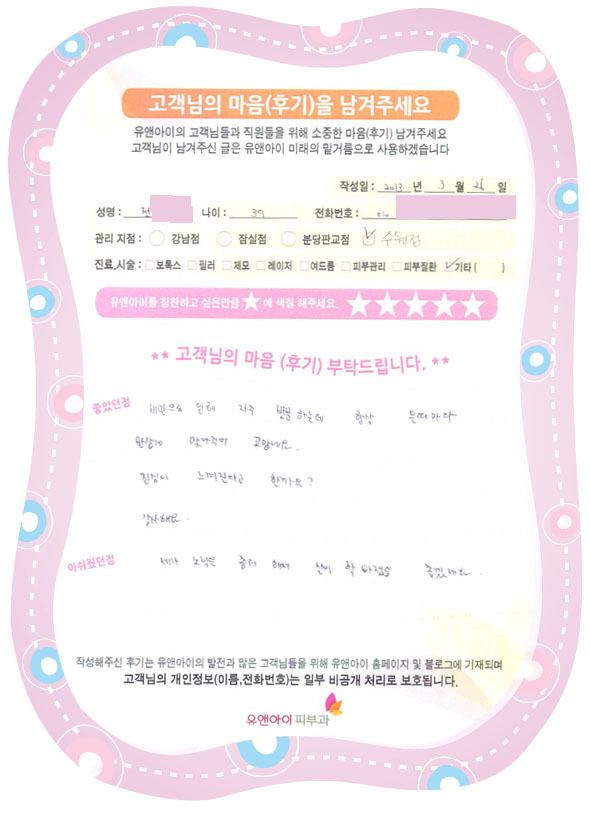 고객님의 마음(후기)을 남겨주세요
유앤아이의 고객님들과 직원들을 위해 소중한 마음(후기) 남겨주세요
고객님이 남겨주신 글은 유앤아이 미래의 밑거름으로 사용하겠습니다
작성일 : 2013 년 3 월 26 일
성명 : 전 나이 : 39 전화번호 : 010
관리 지점 : 강남점 잠실점 분당판교점 수원점
진료,시술 : 보톡스 필러 제모 레이저 여드름 피부관리 피부질환 기타 ( )
유앤아이를 칭찬하고 싶은만큼 ★ 에 색칠 해주세요. ★★★★★
** 고객님의 마음 (후기) 부탁드립니다. **
좋았던점 비만으로 인해 자주 방문 하는데 항상 올때마다
반갑게 맞아주어 고맙네요.
진심이 느껴진다고 할까요?
감사해요.
아쉬웠던점 제가 노력은 좀더 해서 살이 확 빠졌음 좋겠네요.
작성해주신 후기는 유앤아이의 발전과 많은 고객님들을 위해 유앤아이 홈페이지 및 블로그에 기재되며
고객님의 개인정보(이름,전화번호)는 일부 비공개 처리로 보호됩니다.
유앤아이피부과